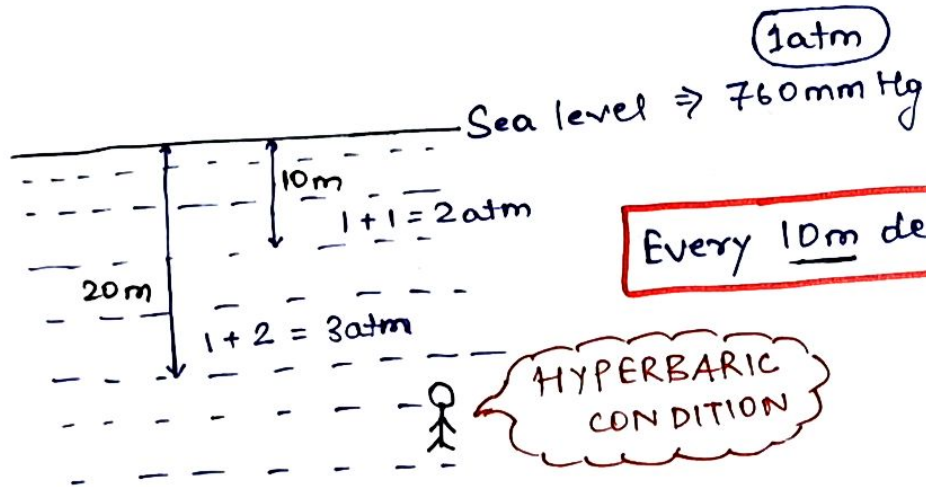 1atm
Sea level ⇒ 760mm Hg
10m
1 + 1 = 2atm
Every 10m de
20m
1 + 2 = 3atm
HYPERBARIC
CONDITION